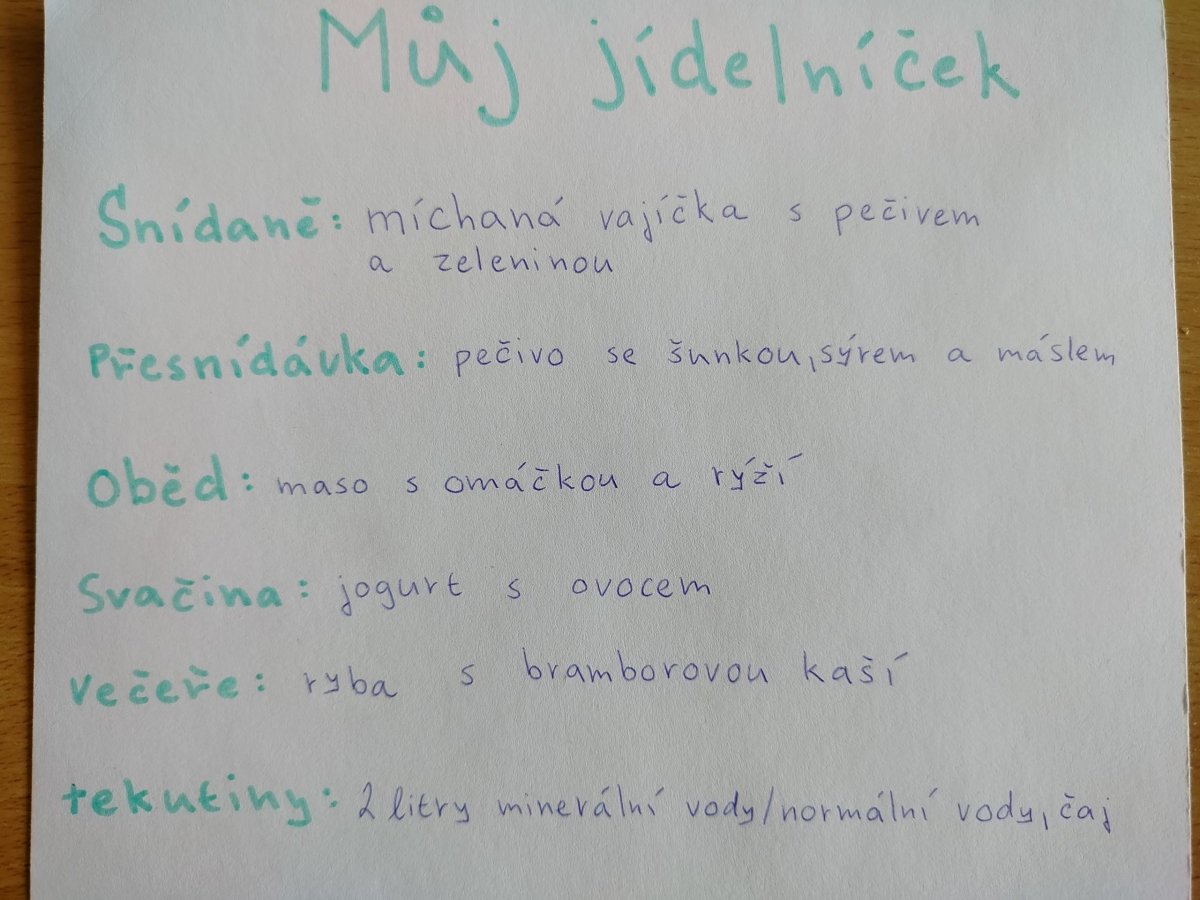 Můj jídelníček
Snídaně: míchaná vajíčka s pečivem
a zeleninou
Přesnídávka: pečivo se šunkou, sýrem a máslem
Oběd: maso s omáčkou a rýží
Svačina: jogurt s ovocem
večeře: ryba s bramborovou kaší
tekutiny: 2 litry minerální vody/normální vody, čaj